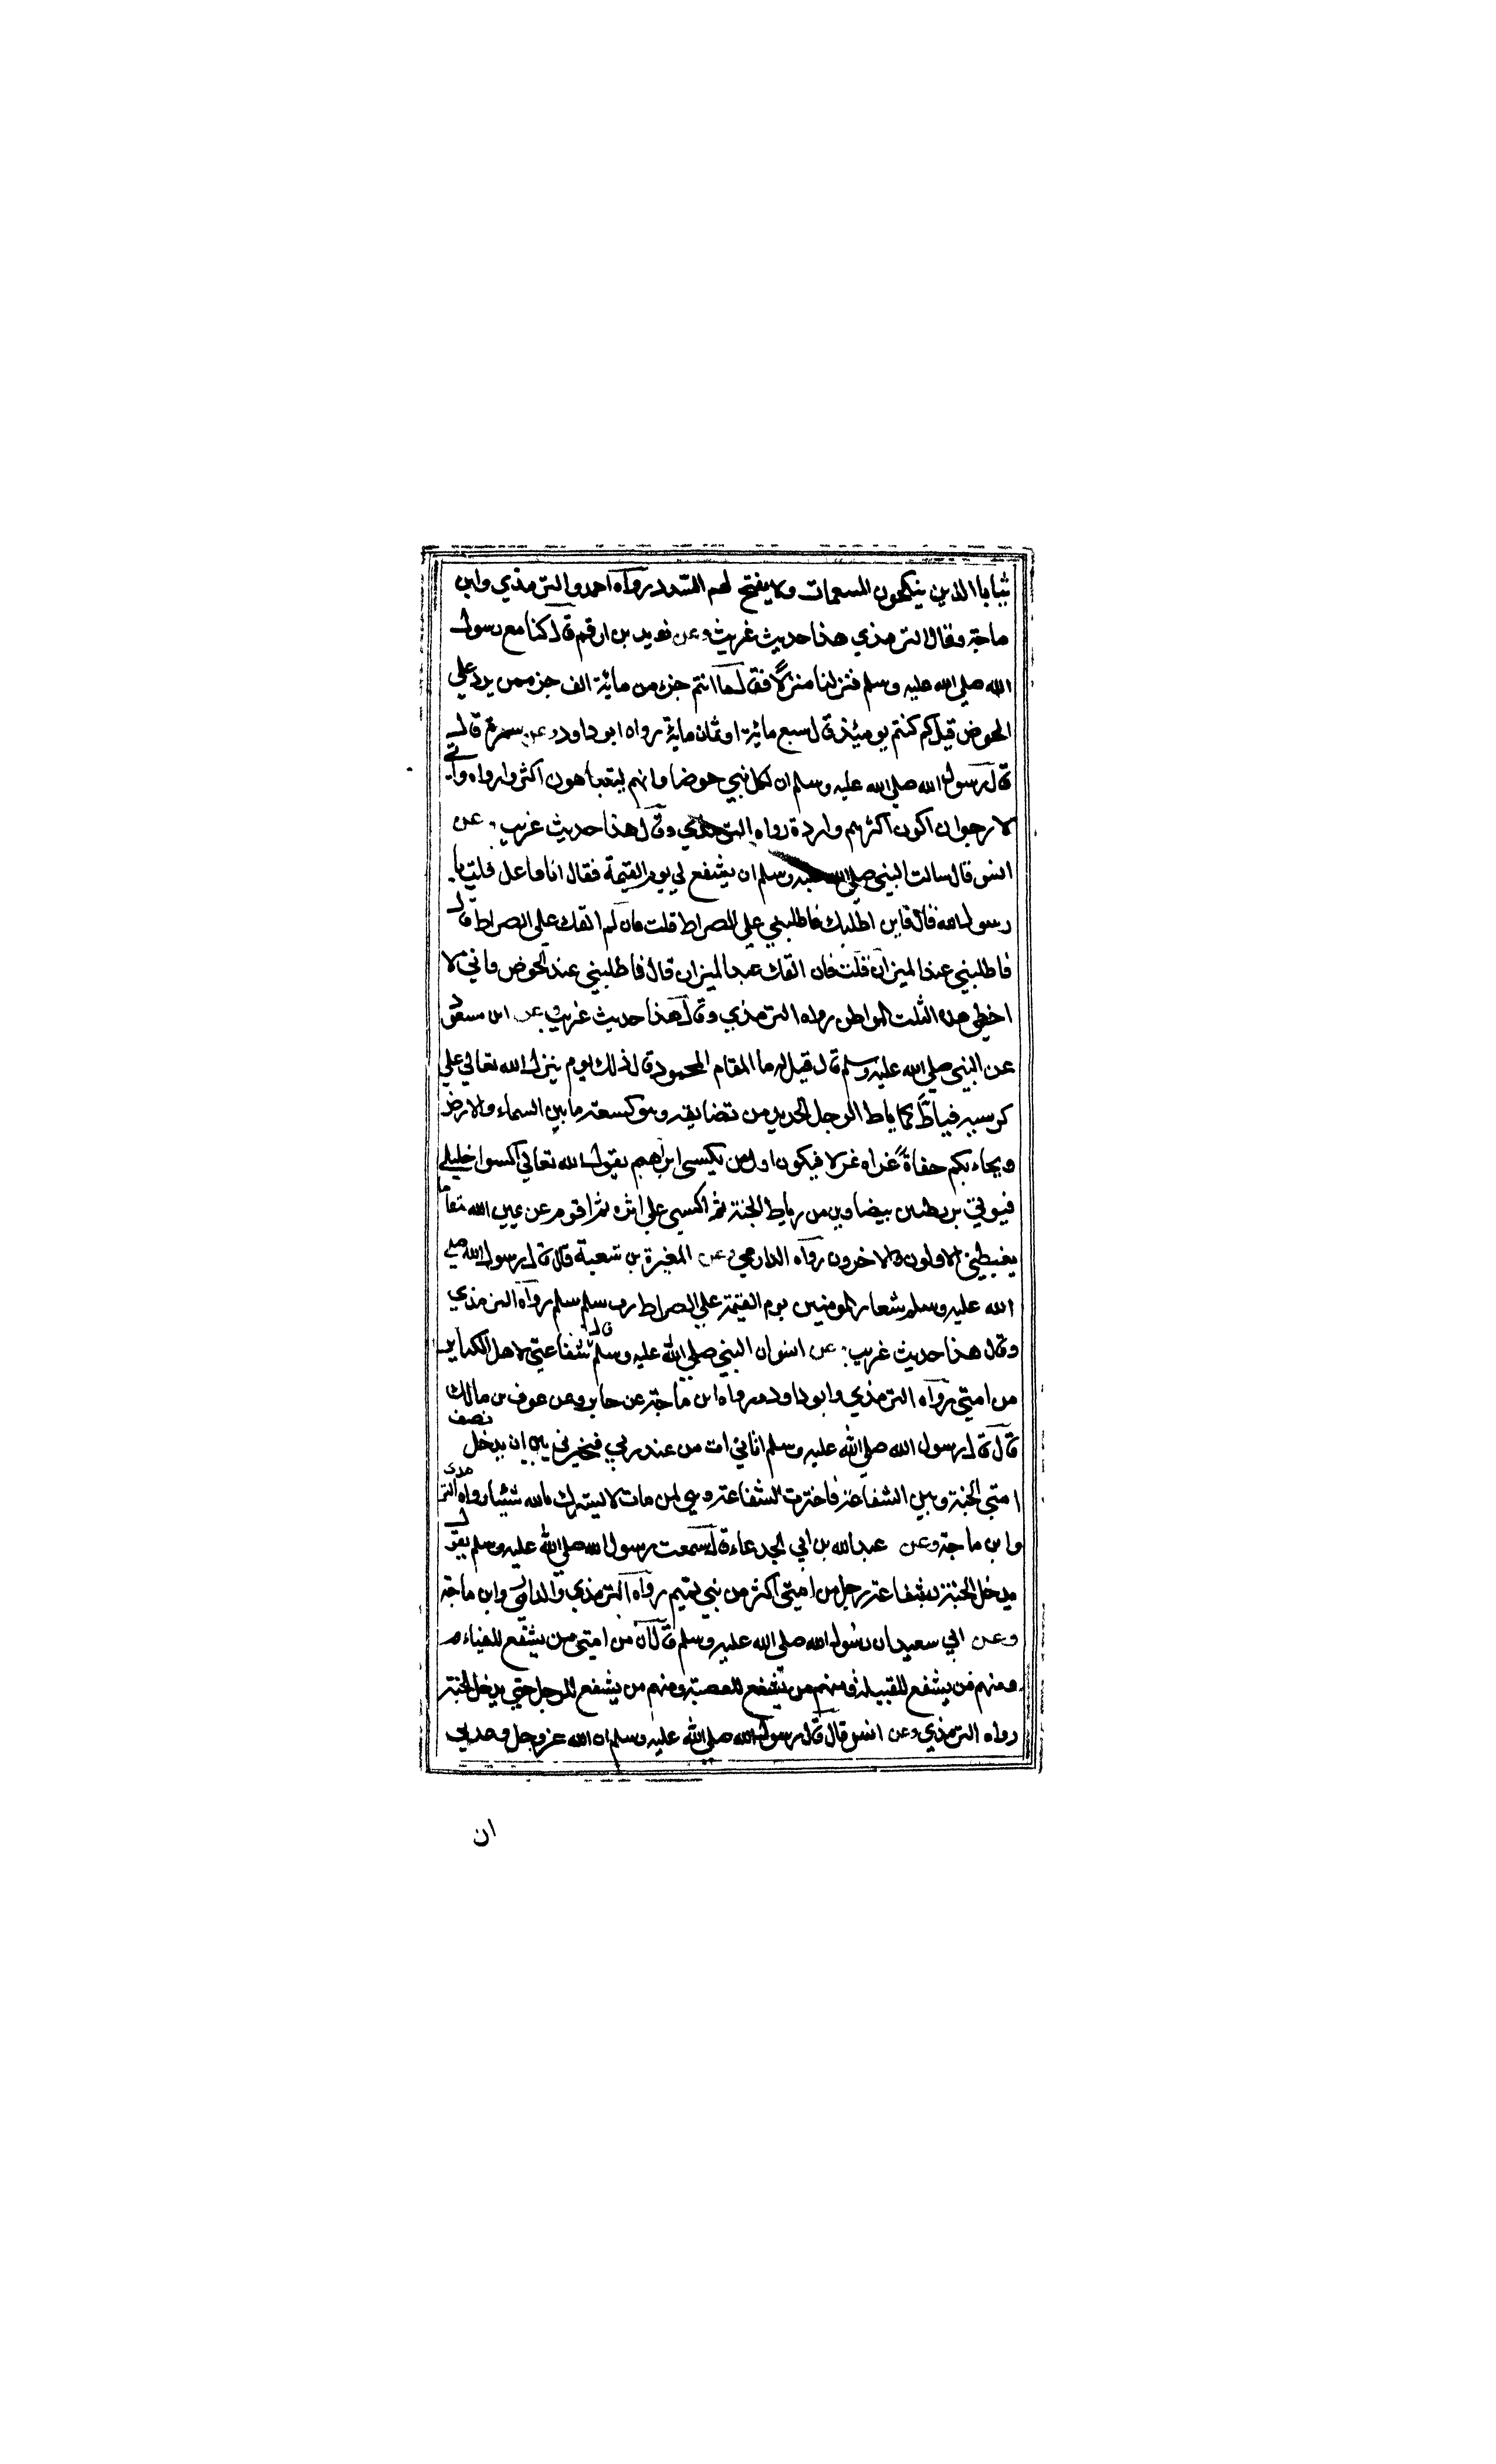 ثيابا الذين ينكحون المنعمات ولا يفتح لهم السدد رواه احمد والترمذي وابن
ماجة وقال الترمذي هذا حديث غريب وعن زيد بن ارقم قال كنا مع رسول
الله صلي الله عليه وسلم فنزلنا منزلا فقال ما انتم جزء من مائة الف جزء ممن يرد علي
الحوض قيل كم كنتم يومئذ قال سبع مائة او ثمان مائة رواه ابو داود وعن سمرة قال
قال رسول الله صلي الله عليه وسلم ان لكل نبي حوضا وانهم ليتباهون اكثر واردة واني
لارجو ان اكون اكثرهم واردة رواه الترمذي وقال هذا حديث غريب وعن
انس قال سالت النبي صلي الله عليه وسلم ان يشفع لي يوم القيمة فقال انا فاعل قلت يا
رسول الله فقال فاين اطلبك فاطلبني علي الصراط قلت فان لم القك علي الصراط قال
فاطلبني عند الميزان قلت فان القك عند الميزان قال فاطلبني عند الحوض فاني لا
اخطي هذه الثلث المواطن رواه الترمذي وقال هذا حديث غريب وعن ابن مسعود
عن النبي صلي الله عليه وسلم قال قيل له ما المقام المحمود قال ذلك يوم ينزل الله تعالي علي
كرسيه فياط كما ياط الرجل الحديد من تضايقه وهو كسعة ما بين السماء والارض
ويجاء بكم حفاة عراه غرلا فيكون اول من يكسي ابراهيم يقول الله تعالي اكسوا خليلي
فيوتي بريطتين بيضاوين من رياط الجنة ثم اكسي علي اثره ثم اقوم عن يمين الله مقاما
يغبطني الاولون والاخرون رواه الدارمي وعن المغيرة بن شعبة قال قال رسول الله صلي
الله عليه وسلم شعار المومنين يوم القيمة علي الصراط رب سلم سلم رواه الترمذي
وقال هذا حديث غريب وعن انس ان النبي صلي الله عليه وسلم قال شفاعتي لاهل الكبائر
من امتي رواه الترمذي وابو داود ورواه ابن ماجة عن جابر وعن عوف بن مالك
قال قال رسول الله صلي الله عليه وسلم اتاني ات من عند ربي فخيرني بين ان يدخل نصف
امتي الجنة وبين الشفاعة فاخترت الشفاعة وهي لمن مات لا يشرك بالله شيئا رواه الترمذي
وابن ماجة وعن عبد الله بن ابي الجدعاء قال سمعت رسول الله صلي الله عليه وسلم يقول
يدخل الجنة بشفاعة رجل من امتي اكثر من بني تميم رواه الترمذي والدارمي وابن ماجة
وعن ابي سعيد ان رسول الله صلي الله عليه وسلم قال ان من امتي من يشفع للفئام
ومنهم من يشفع للقبيلة ومنهم من يشفع للعصبة ومنهم من يشفع للرجل حتي يدخل الجنة
رواه الترمذي وعن انس قال قال رسول الله صلي الله عليه وسلم ان الله عز وجل وعدني
ان